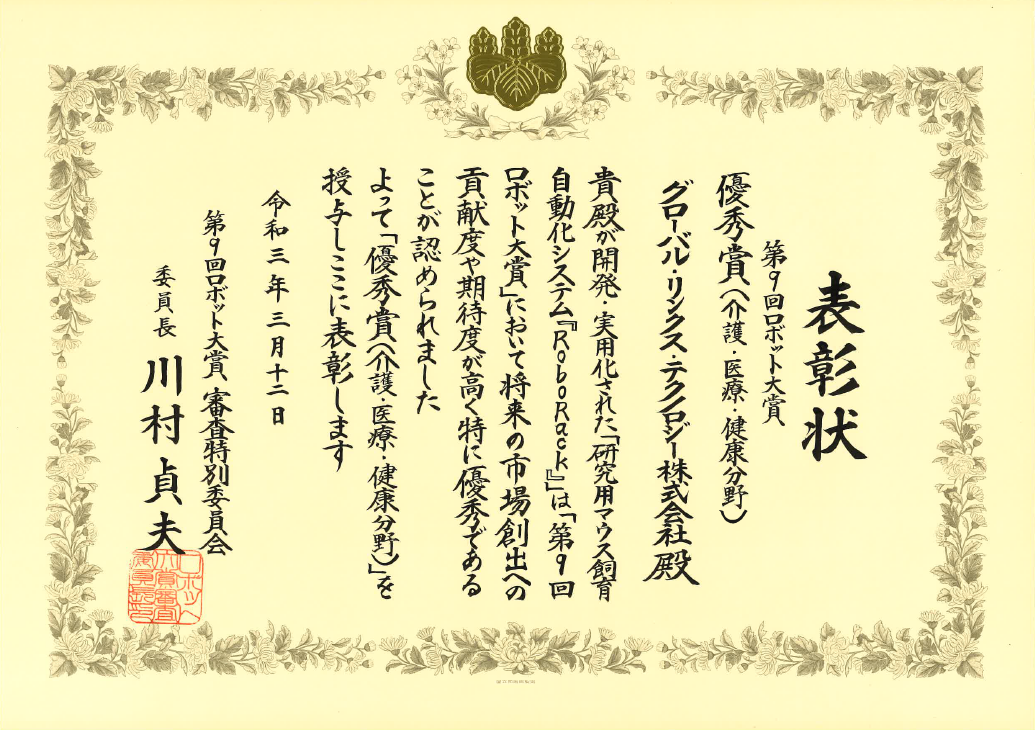 表彰状
第9回ロボット大賞
優秀賞（介護・医療・健康分野）
グローバル・リンクス・テクノロジー株式会社 殿
貴殿が開発・実用化された「研究用マウス飼育
自動化システム『RoboRack』」は「第9回
ロボット大賞」において将来の市場創出への
貢献度や期待度が高く特に優秀である
ことが認められました
よって「優秀賞（介護・医療・健康分野）」を
授与しここに表彰します
令和三年三月十二日
第9回ロボット大賞、審査特別委員会
委員長 川村貞夫